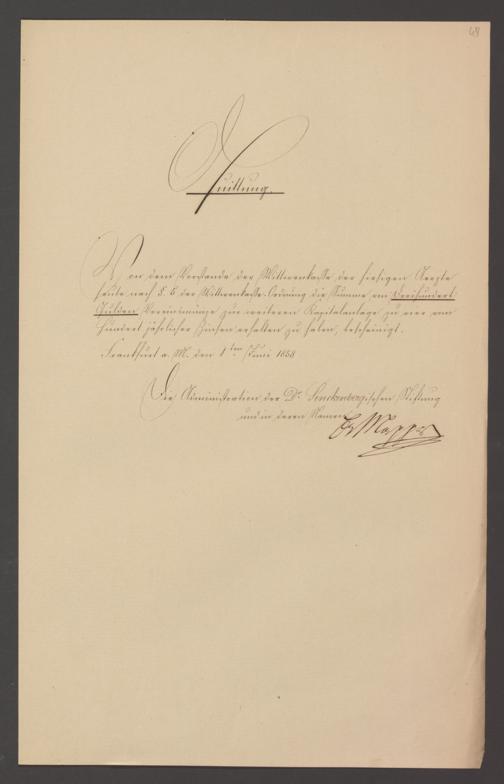 48
Quittung.
Von dem Vorstande der Wittwenkasse der hiesigen Aerzte
heute nach §. 5 der Wittwenkasse-Ordnung die Summe von Dreihundert
Gulden Vereinsmünze zur weiteren Kapitalanlage zu vier vom
Hundert jährlicher Zinsen erhalten zu haben, bescheinigt.
Frankfurt a. M. den 1ten Juni 1858
Die Administration der Dr. Senckenbergischen Stiftung
und in deren Namen
Mappes